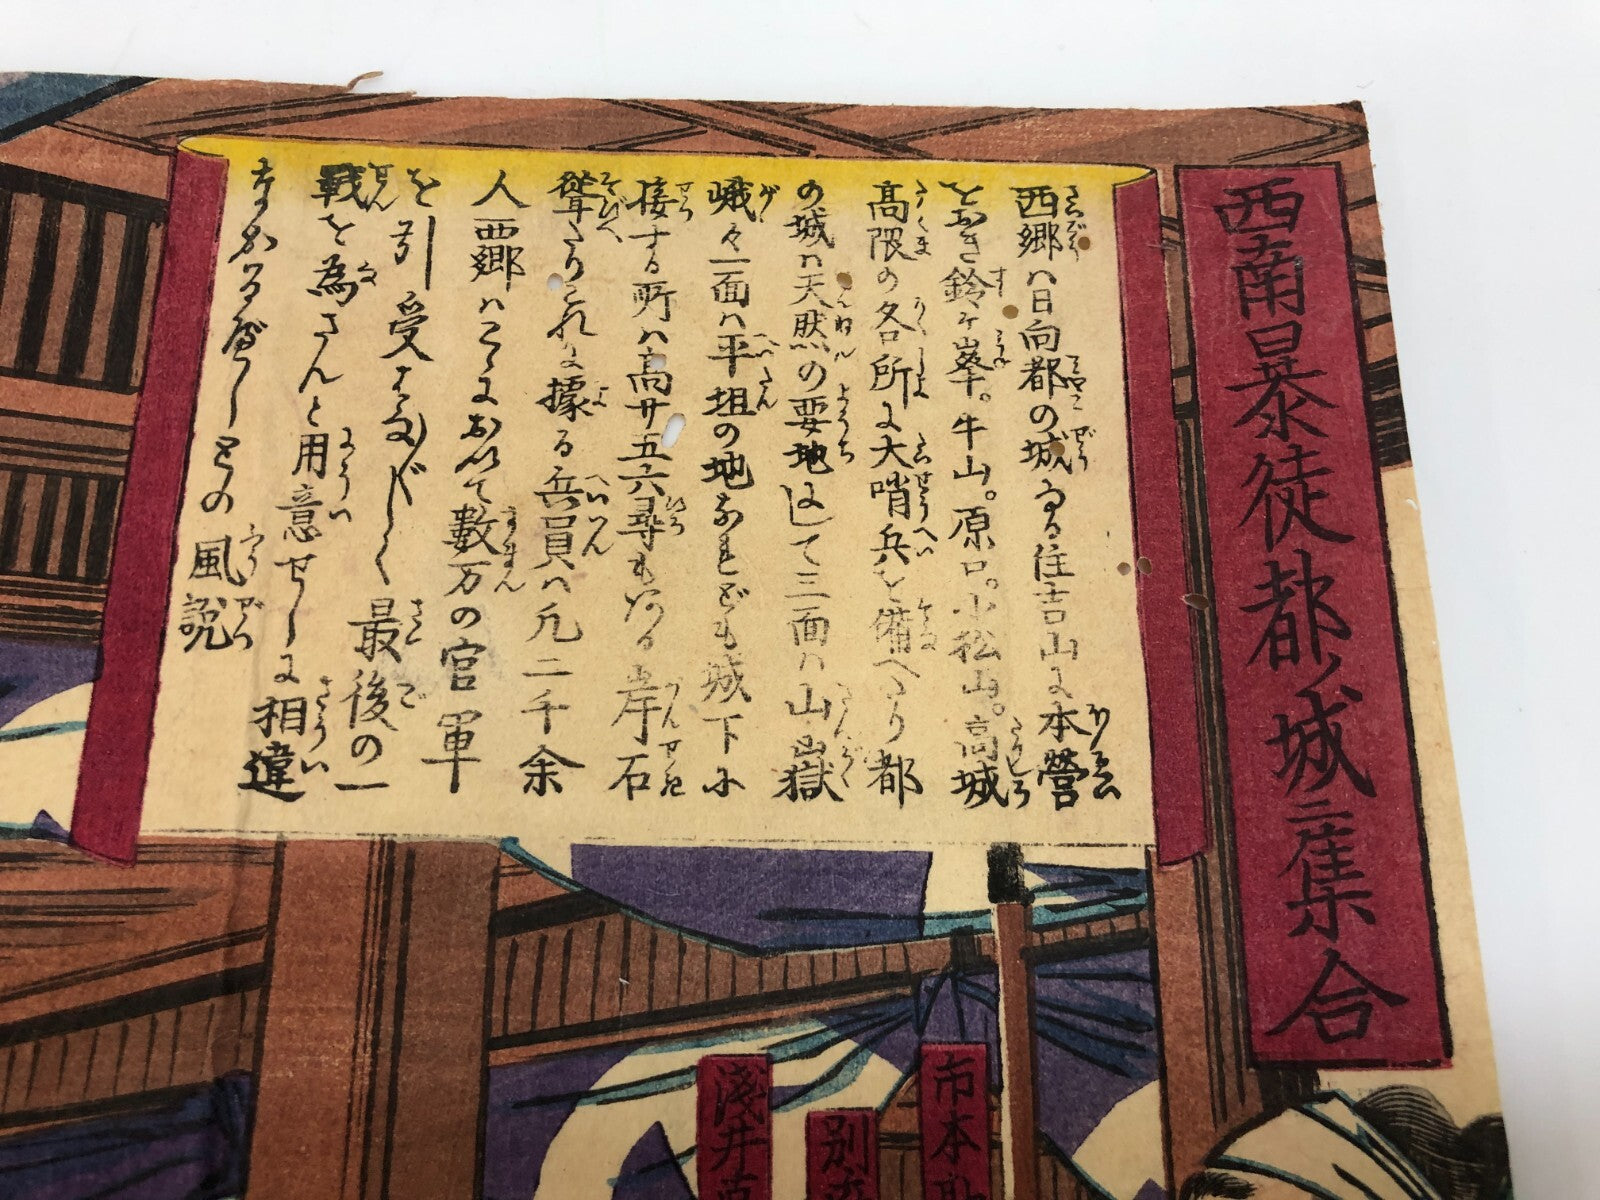 西南暴徒都ノ城ニ集合
西郷ハ日向都の城なる住吉山に本營
をおき鈴ヶ峯。牛山。原口。小松山。高城
高隈の各所に大哨兵を備へたり都
の城ハ天然の要地にして三面ハ山嶽
峨々一面ハ平坦の地なれども城下に
接する所ハ高サ五六尋もある岸石
聳たりこれに據る兵員ハ凡二千余
人西郷ハこゝにおいて數万の官軍
を引受はなばなしく最後の一
戰を為さんと用意せしに相違
なかるべしとの風説
市本
別
淺井